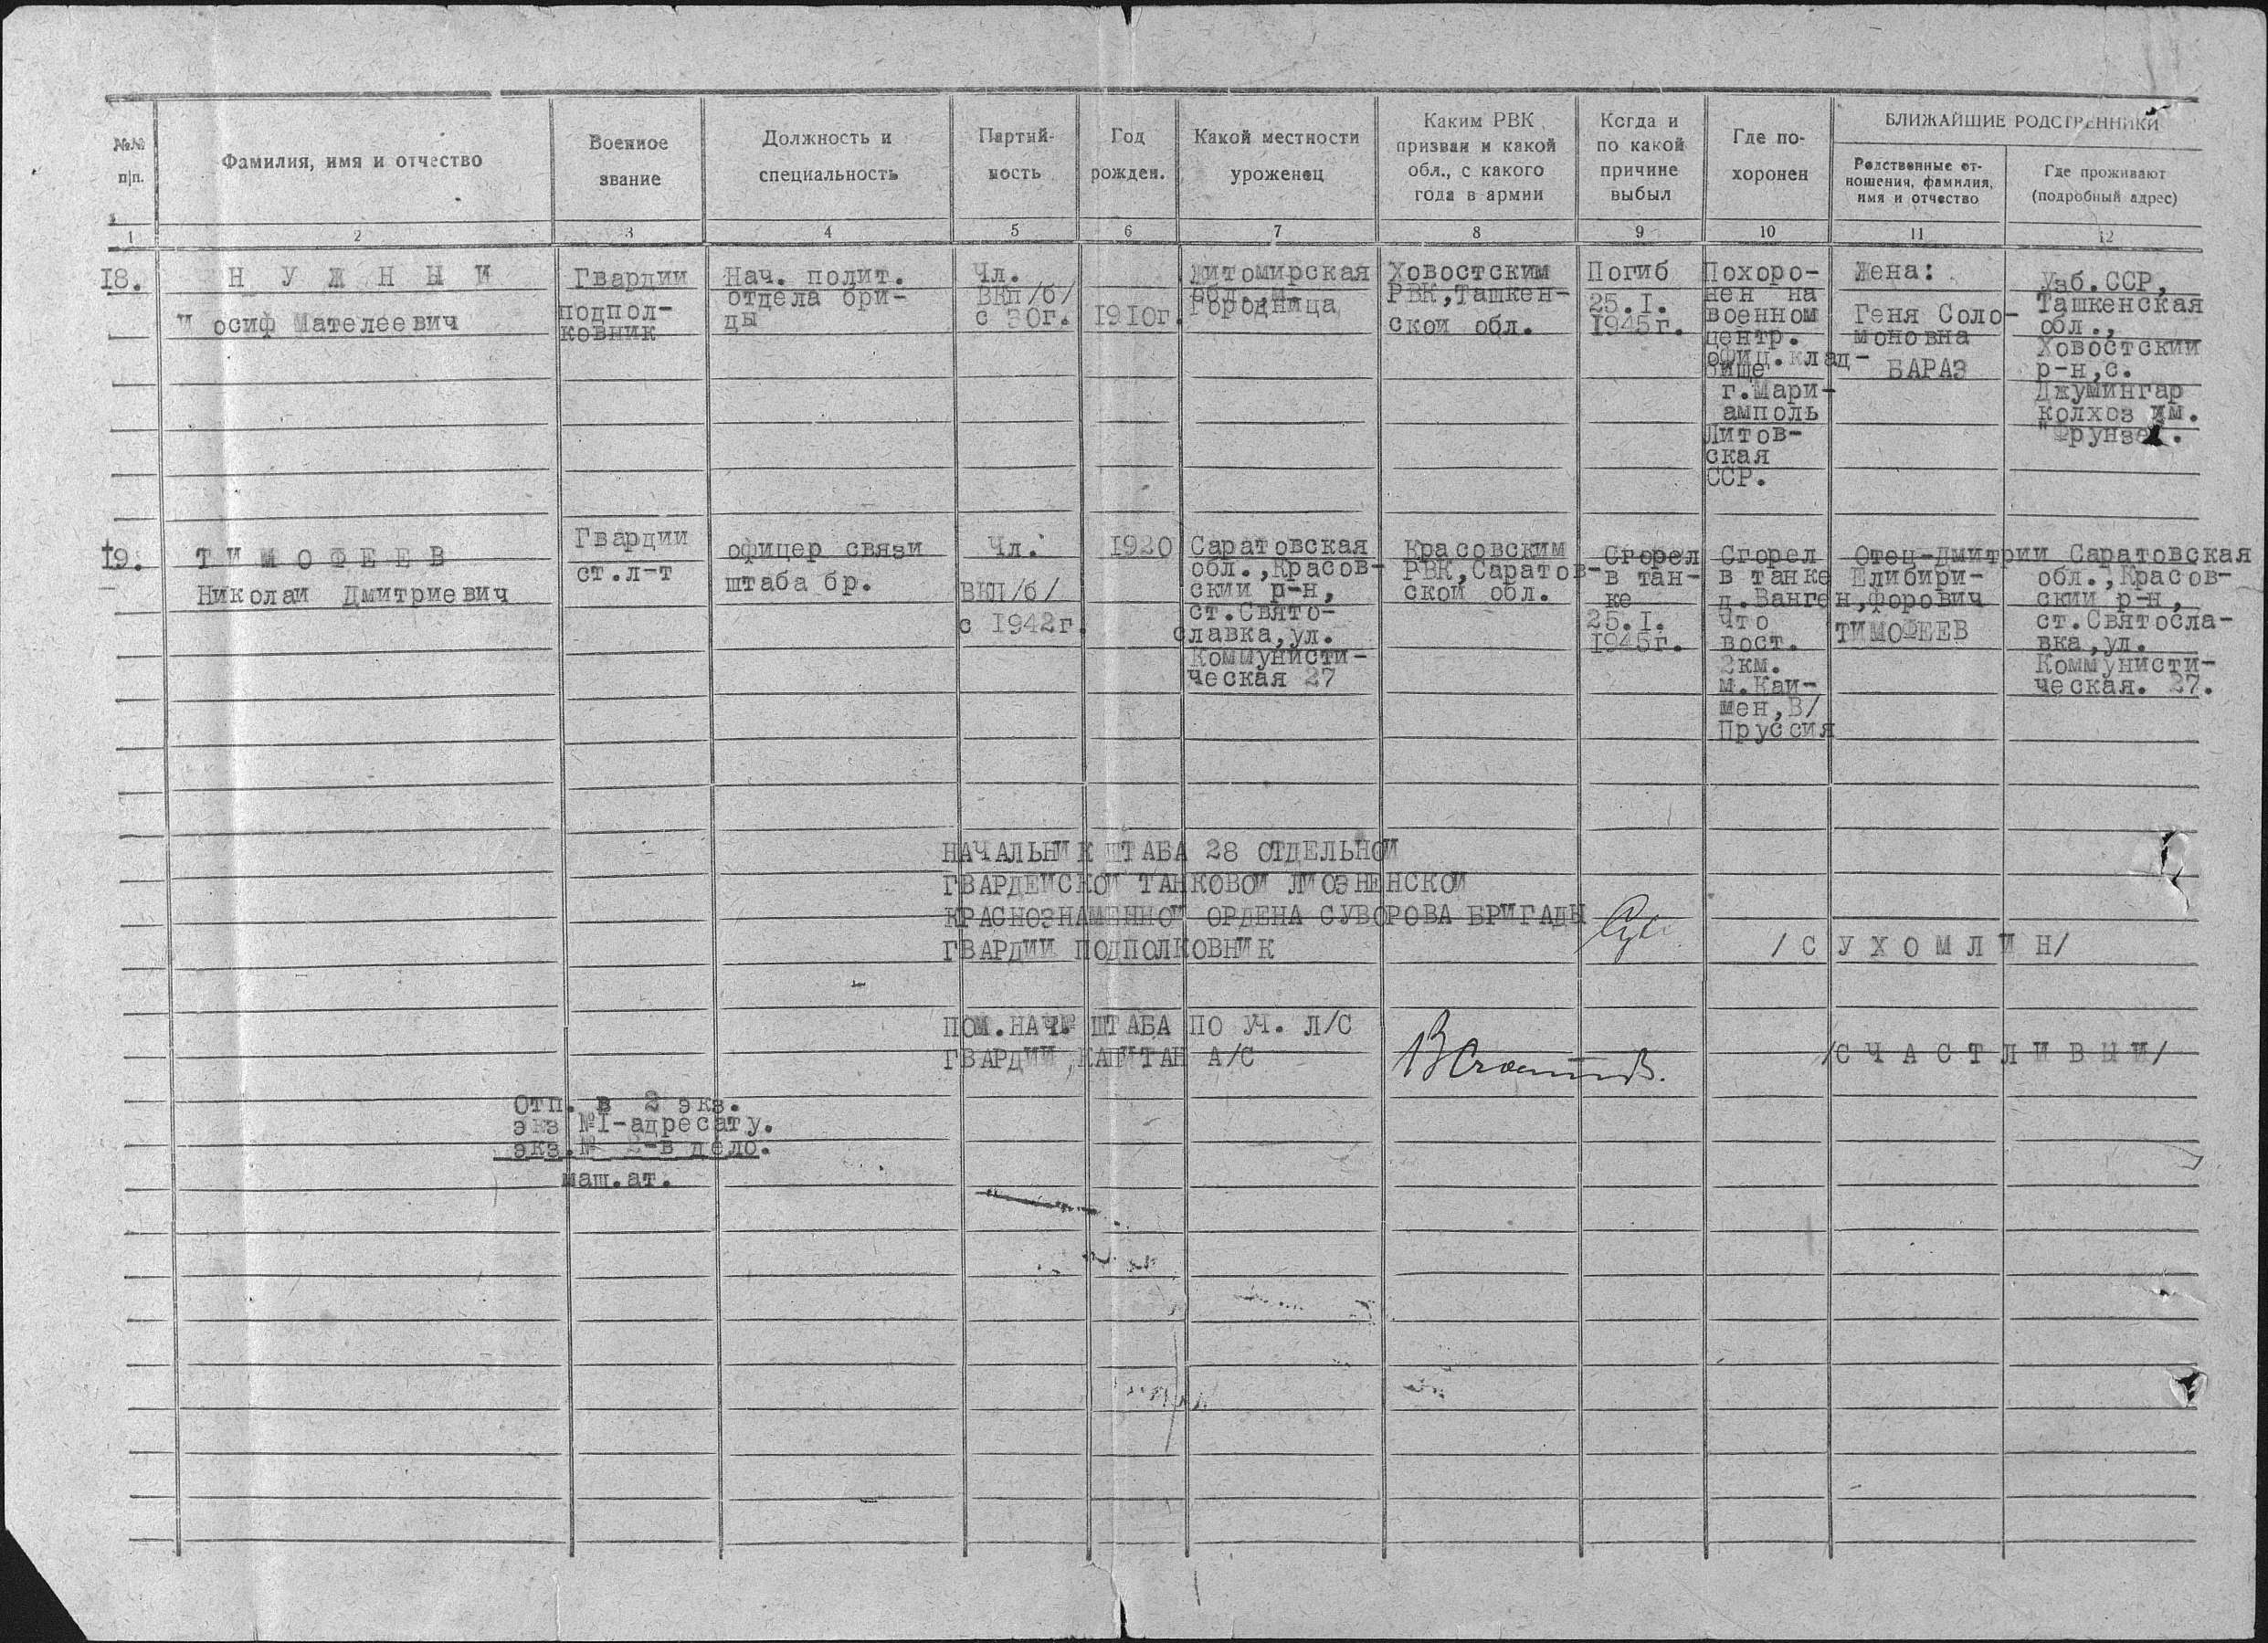 №№ п|п.
Фамилия, имя и отчество
Военное звание
Должность и специальность
Партий-
ность
Год рожден.
Какой местности уроженец
Каким РВК
призван и какой
обл., с какого
года в армии
Когда и
по какой
причине
выбыл
Где по-
хоронен
БЛИЖАЙШИЕ РОДСТВЕННИКИ
Родственные от-
ношения, фамилия,
имя и отчество
Где проживают
(подробный адрес)
1 2 3 4 5 6 7 8 9 10 11 12
18.
Н У Ж Н Ы Й
И осиф Мателеевич
Гвардии
подпол-
ковник
Нач. полит.
отдела бри-
ды
Чл.
ВКП/б/
с 30г.
1910г.
Житомирская
обл., м.
Городница
Ховостским
РВК,Ташкен-
ской обл.
Погиб
25.I.
1945г.
Похоро-
нен на
военном
центр.
офиц.клад-
бище
г.Мари-
амполь
Литов-
ская
ССР.
Жена:
Геня Соло-
моновна
БАРАЗ
Узб.ССР,
Ташкенская
обл.,
Ховостский
р-н,с.
Джумингар
колхоз им.
"Фрунзе".
19.
Т И М О Ф Е Е В
Николай Дмитриевич
Гвардии
ст.л-т
офицер связи
штаба бр.
Чл.
ВКП/б/
с 1942г.
1920
Саратовская
обл.,Красов-
ский р-н,
ст.Свято-
славка,ул.
Коммунисти-
ческая 27
Красовским
РВК,Саратов-
ской обл.
Сгорел
в тан-
ке
25.I.
1945г.
Сгорел
в танке
д.Ванген,
что
вост.
2км.
м.Кай-
мен,В/
Пруссия
Отец-Дмитрий
Елибири-
форович
ТИМОФЕЕВ
Саратовская
обл.,Красов-
ский р-н,
ст.Святосла-
вка,ул.
Коммунисти-
ческая. 27.
НАЧАЛЬНИК ШТАБА 28 ОТДЕЛЬНОЙ
ГВАРДЕЙСКОЙ ТАНКОВОЙ ЛИОЗНЕНСКОЙ
КРАСНОЗНАМЕННОЙ ОРДЕНА СУВОРОВА БРИГАДЫ
ГВАРДИИ ПОДПОЛКОВНИК /С У Х О М Л И Н/
ПОМ.НАЧ. ШТАБА ПО УЧ. Л/С
ГВАРДИИ КАПИТАН А/С /С Ч А С Т Л И В Ы Й/
Отп. в 2 экз.
экз №I-адресату.
экз.№ 2-в дело.
маш.ат.